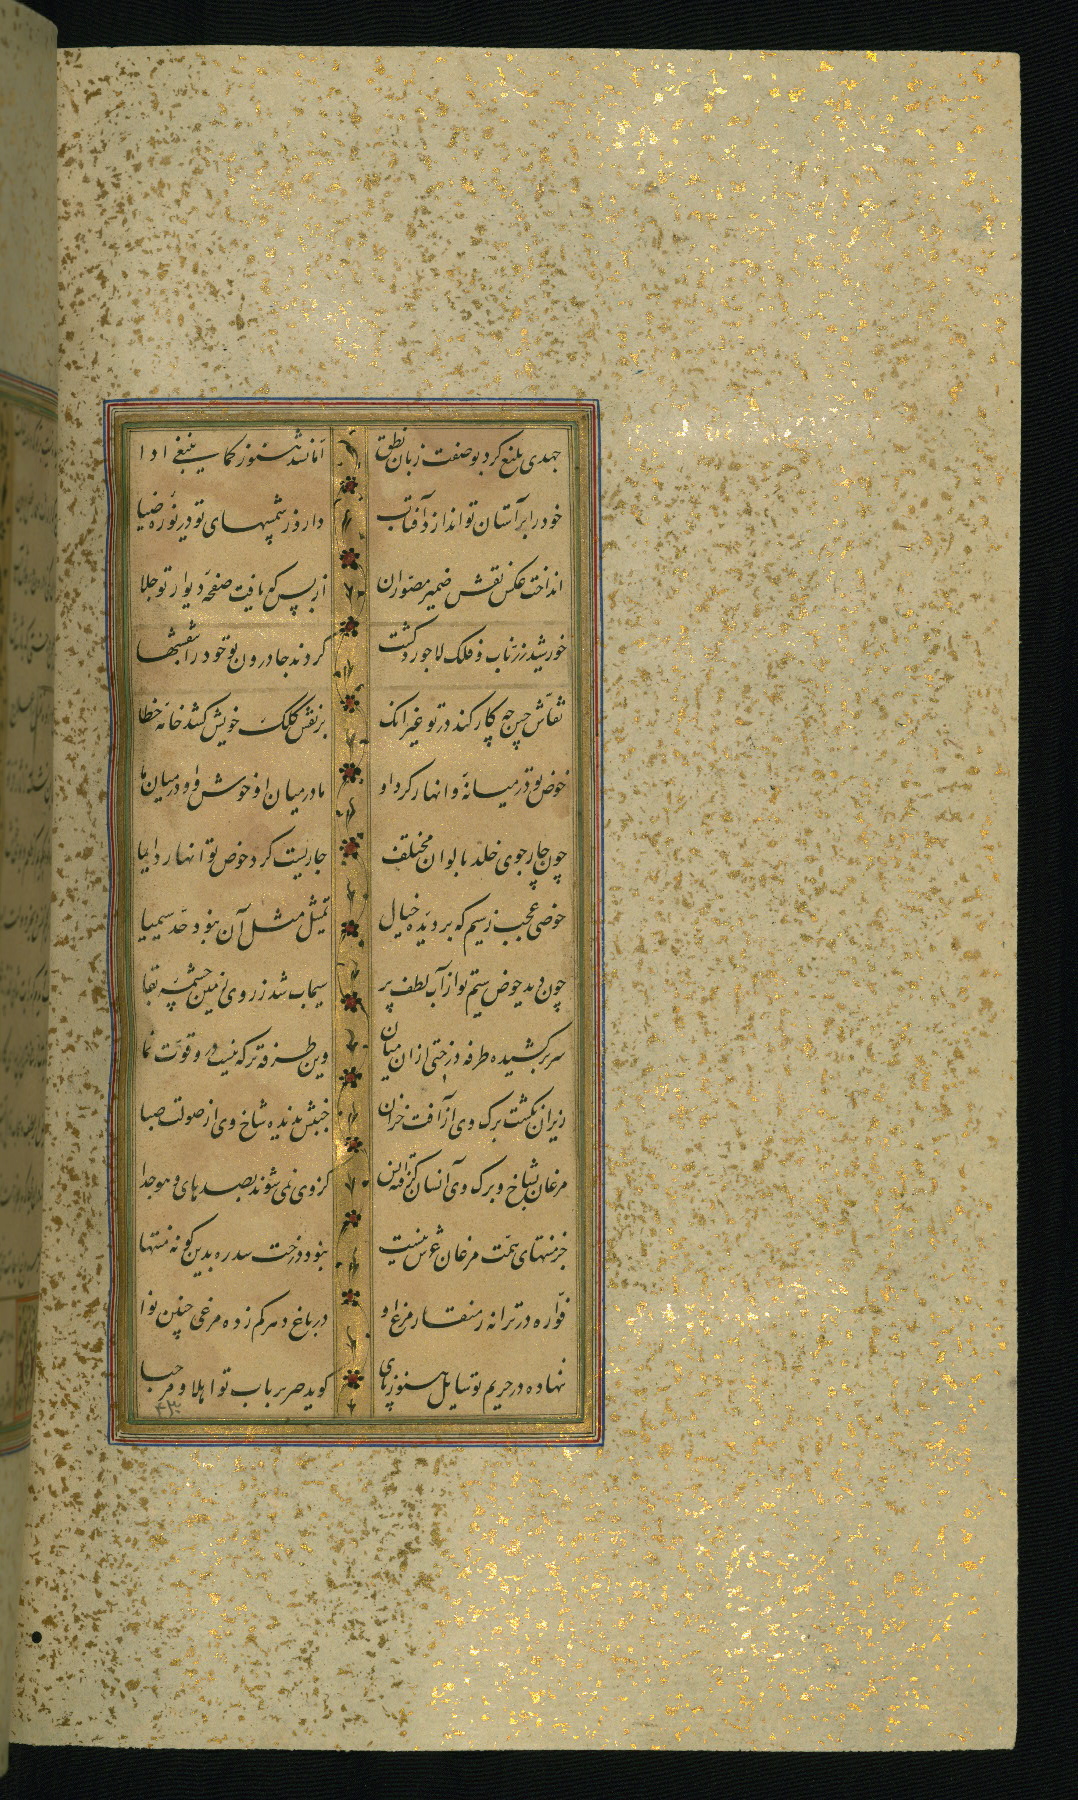 جهدی بلیغ کرد بوصفت زبان نطق اما نشد هنوز کما ینبغی ادا
خود را بر آستان تو اندازد آفتاب دارد ز شمسهای تو دریوزه ضیا
انداخت عکس نقش ضمیر مصوران از بس که یافت صفحه دیوار تو جلا
خورشید زر ناب و فلک لاجورد گشت کردند جا درون تو خود را بنقشها
نقاش چین چه کار کند در تو غیر آنک بر نقش کلک خویش کشد خامه خطا
حوض تو در میانه و انهار گرد او ما در میان او خوش و او در میان ما
چون چار جوی خلد بالوان مختلف جاریست گرد حوض تو انهار دایما
حوضی عجب ز سیم که بر دیده خیال تمثیل مثل آن نبود حد سیمیا
چون دید حوض سیم تو از آب لطف پر سیماب شد ز روی زمین چشمه بقا
سر بر کشیده طرفه درختی از آن میان وین طرفه تر که نیست درو قوت نما
ریزان نگشت برگ وی از آفت خزان جنبش ندیده شاخ وی از صولت صبا
مرغان بشاخ و برگ وی آنسان گرفته انس کز وی نمی شوند بصد های و هو جدا
جز منتهای همت مرغان عرش نیست نبود درخت سدره بدین گونه منتها
فواره در ترانه ز منقار مرغ او در باغ دهر کم زده مرغی چنین نوا
نهاده در حریم تو سایل هنوز پای گوید صریر باب تو اهلا و مرحبا